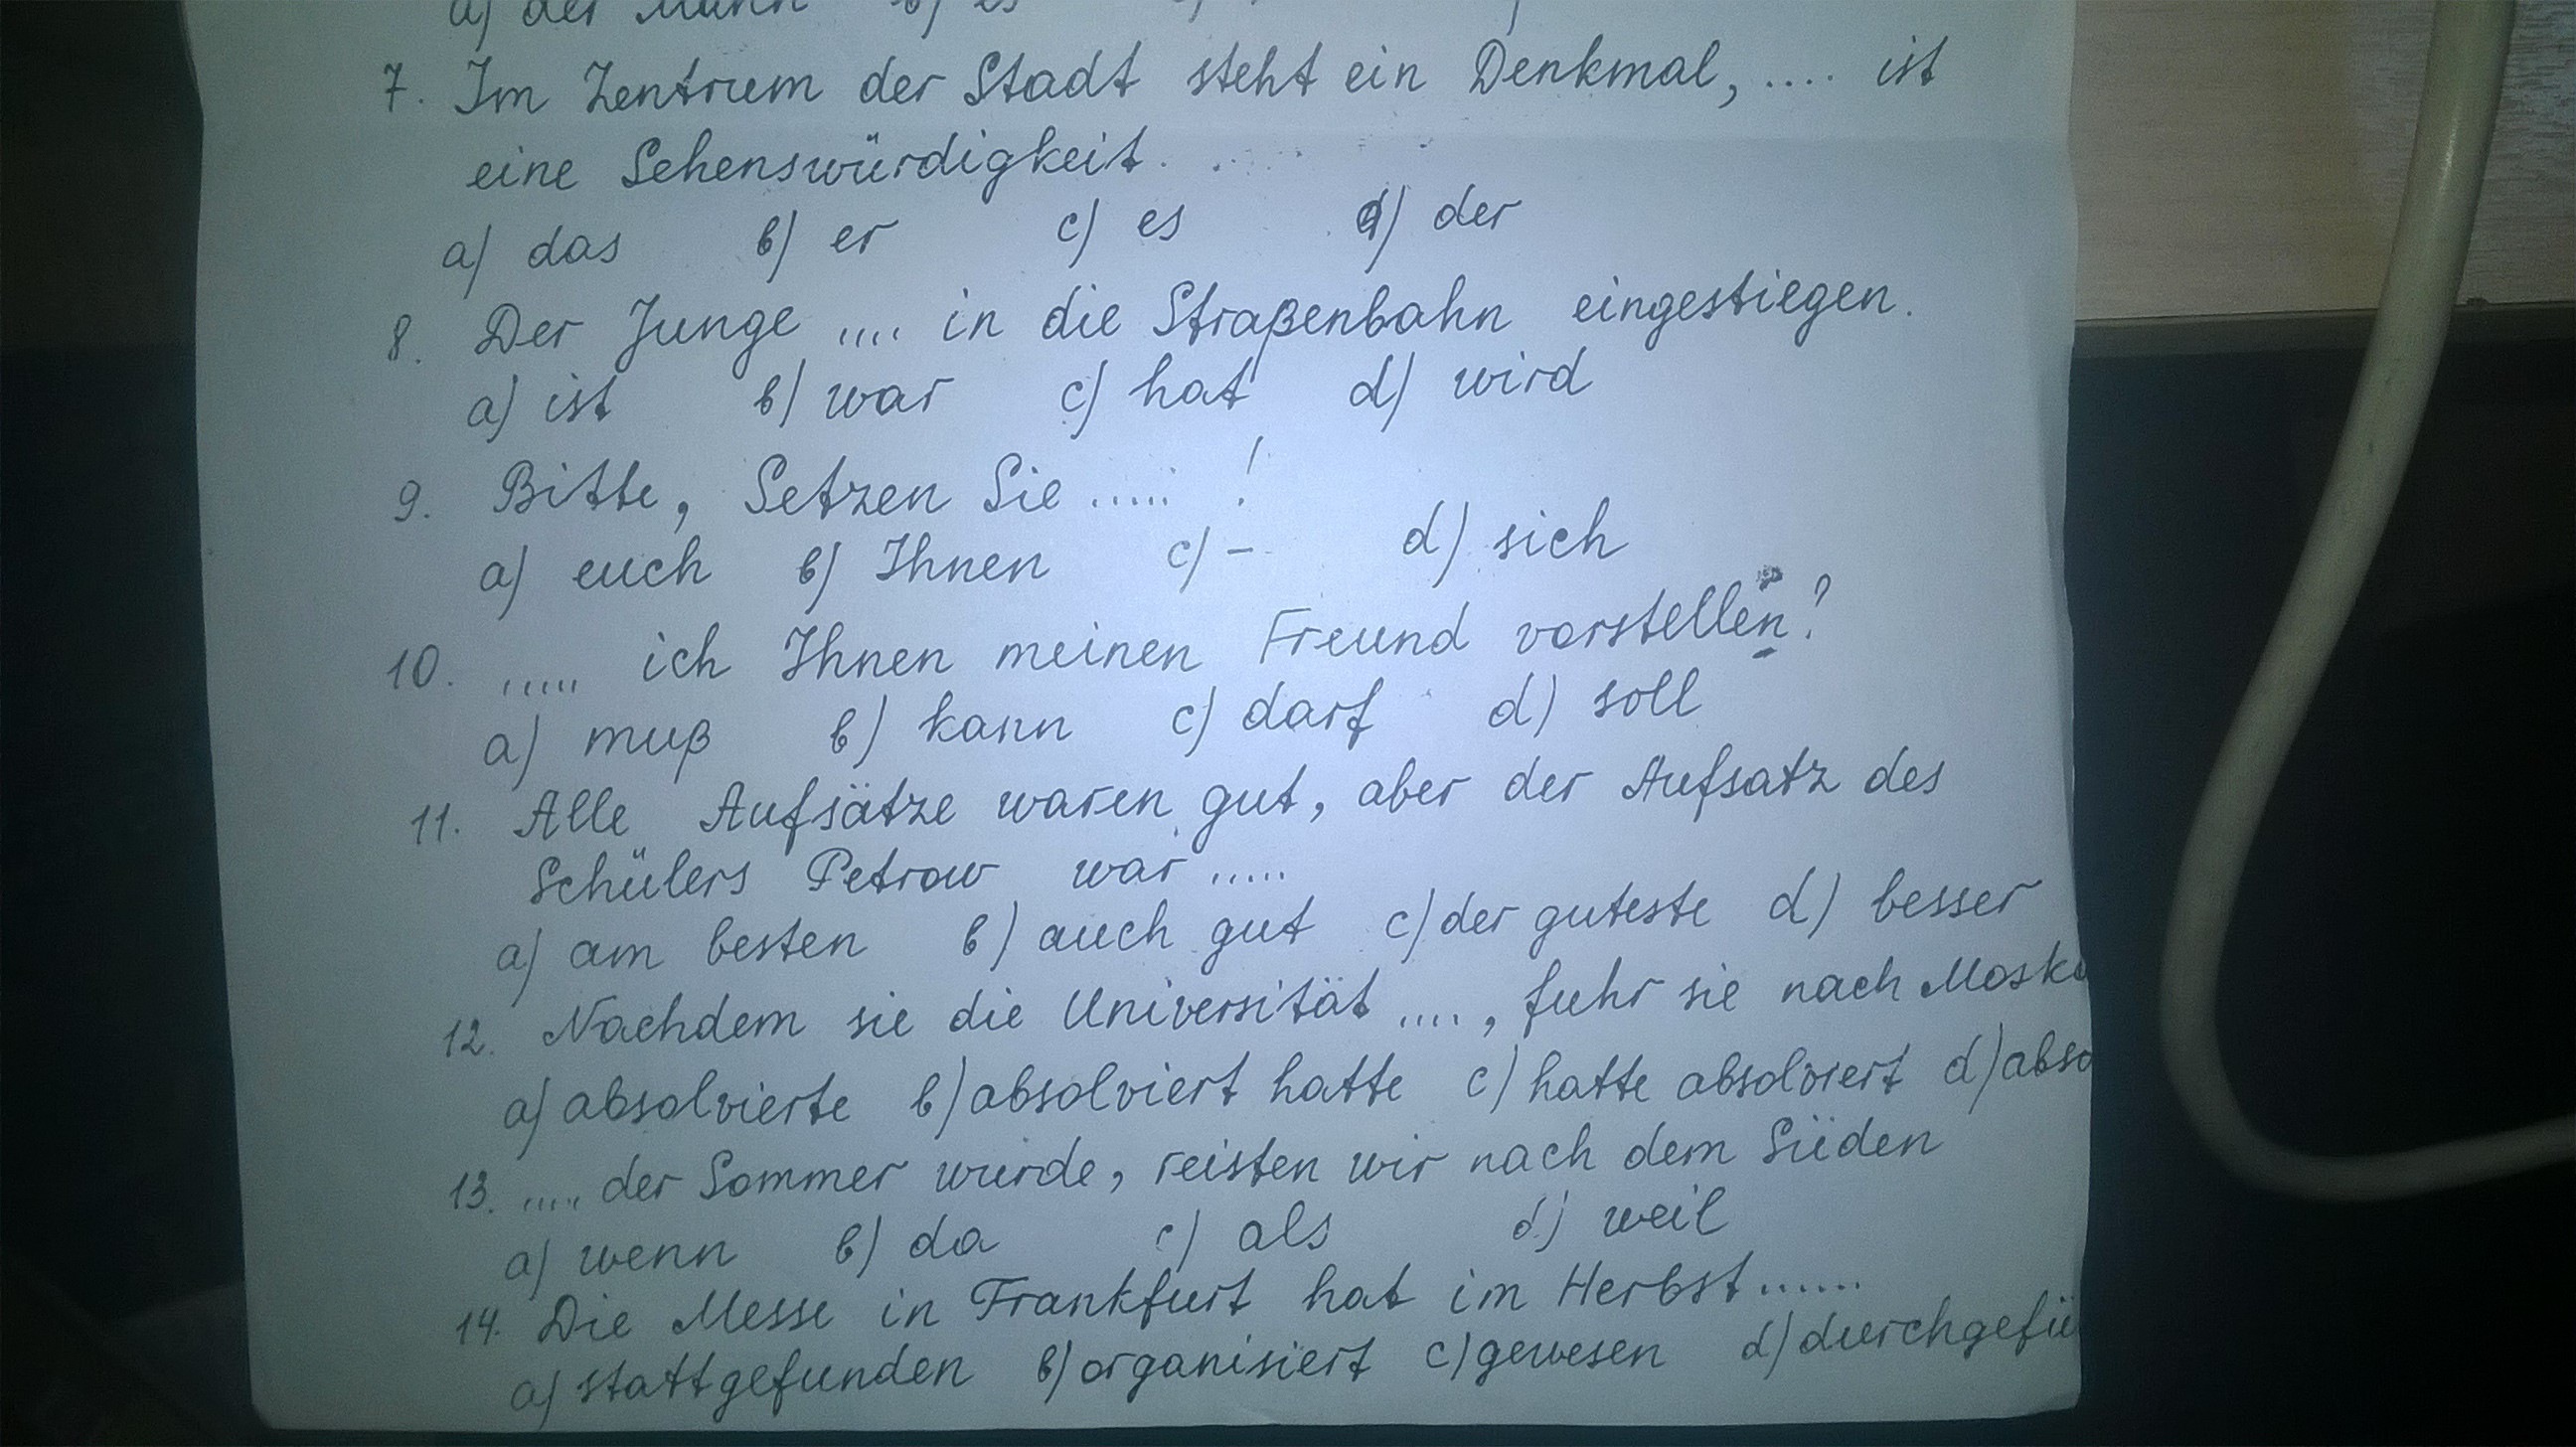 a) der Mann b) es
7. Im Zentrum der Stadt steht ein Denkmal, .... ist
eine Sehenswürdigkeit.
a) das b) er c) es d) der
8. Der Junge .... in die Straßenbahn eingestiegen.
a) ist b) war c) hat d) wird
9. Bitte, Setzen Sie ..... !
a) euch b) Ihnen c) – d) sich
10. ..... ich Ihnen meinen Freund vorstellen?
a) muß b) kann c) darf d) soll
11. Alle Aufsätze waren gut, aber der Aufsatz des
Schülers Petrow war .....
a) am besten b) auch gut c) der guteste d) besser
12. Nachdem sie die Universität ...., fuhr sie nach Mosk
a) absolvierte b) absolviert hatte c) hatte absolviert d) abso
13. .... der Sommer wurde, reisten wir nach dem Süden
a) wenn b) da c) als d) weil
14. Die Messe in Frankfurt hat im Herbst ......
a) stattgefunden b) organisiert c) gewesen d) durchgefü